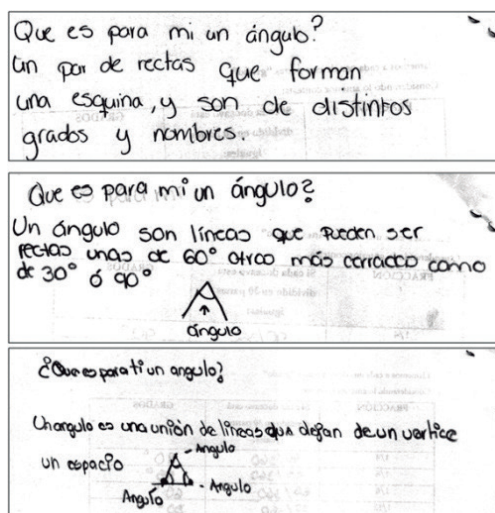 Que es para mi un ángulo?
Un par de rectas que forman
una esquina, y son de distintos
grados y nombres.
Que es para mi un ángulo?
Un ángulo son líneas que pueden ser
rectas unas de 60° otras más cerradas como
de 30° ó 90°
ángulo
¿Que es para ti un angulo?
Un angulo es una unión de lineas que dejan de un vertice
un espacio
Angulo
Angulo
Angulo